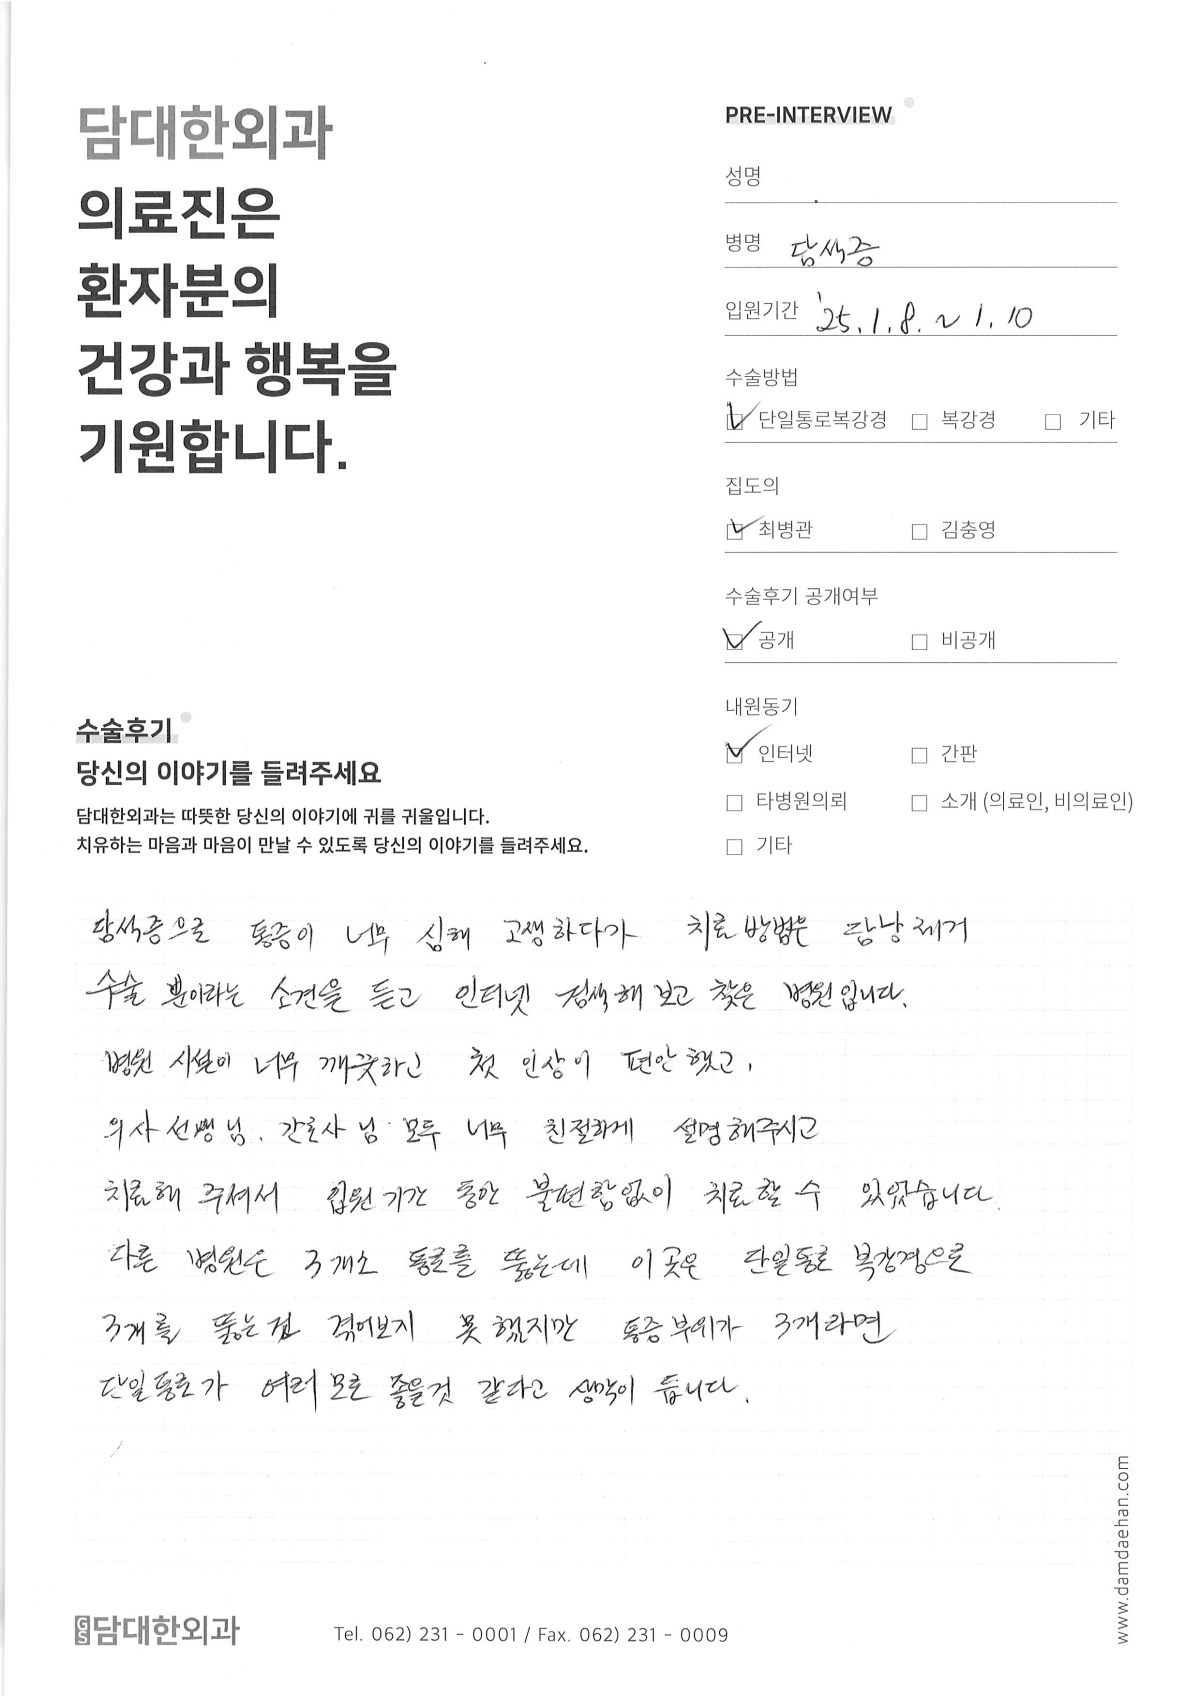 담대한외과
의료진은
환자분의
건강과 행복을
기원합니다.
PRE-INTERVIEW
성명
병명 담석증
입원기간 '25. 1. 8. ~ 1. 10
수술방법
☑ 단일통로복강경 □ 복강경 □ 기타
집도의
☑ 최병관 □ 김충영
수술후기 공개여부
☑ 공개 □ 비공개
내원동기
☑ 인터넷 □ 간판
□ 타병원의뢰 □ 소개 (의료인, 비의료인)
□ 기타
수술후기
당신의 이야기를 들려주세요
담대한외과는 따뜻한 당신의 이야기에 귀를 귀울입니다.
치유하는 마음과 마음이 만날 수 있도록 당신의 이야기를 들려주세요.
담석증으로 통증이 너무 심해 고생하다가 치료 방법은 담낭제거
수술 뿐이라는 소견을 듣고 인터넷 검색해 보고 찾은 병원입니다.
병원 시설이 너무 깨끗하고 첫 인상이 편안했고,
의사 선생님. 간호사님 모두 너무 친절하게 설명해주시고
치료해 주셔서 입원기간 동안 불편함없이 치료할 수 있었습니다.
다른 병원은 3개소 통로를 뚫는데 이곳은 단일통로 복강경으로
3개를 뚫는건 겪어보지 못했지만 통증부위가 3개라면
단일통로가 여러모로 좋을것 같다고 생각이 듭니다.
GS 담대한외과
Tel. 062) 231 - 0001 / Fax. 062) 231 - 0009
www.damdaehan.com